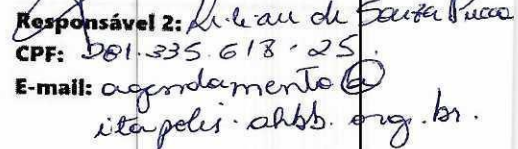 Responsável 2: Lilian de Souza Pucca
CPF: 081.335.618-25.
E-mail: agendamento@
itapolis.ahbb.org.br.